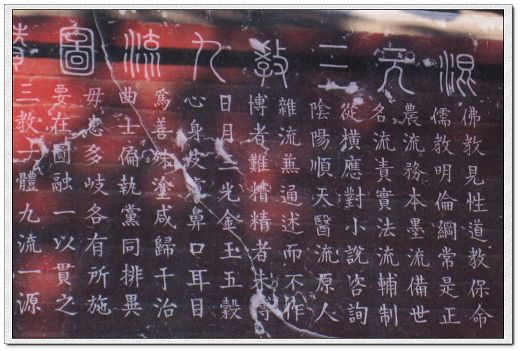 混元三教九流圖贊
佛教見性道教保命
儒教明倫綱常是正
農流務本墨流備世
名流責實法流輔制
從橫應對小說咨詢
陰陽順天醫流原人
雜流兼通述而不作
博者難精精者未博
日月三光金玉五穀
心身皮膚鼻口耳目
為善殊塗咸歸于治
曲士偏執黨同排異
毋患多岐各有所施
要在圓融一以貫之
三教一體九流一源